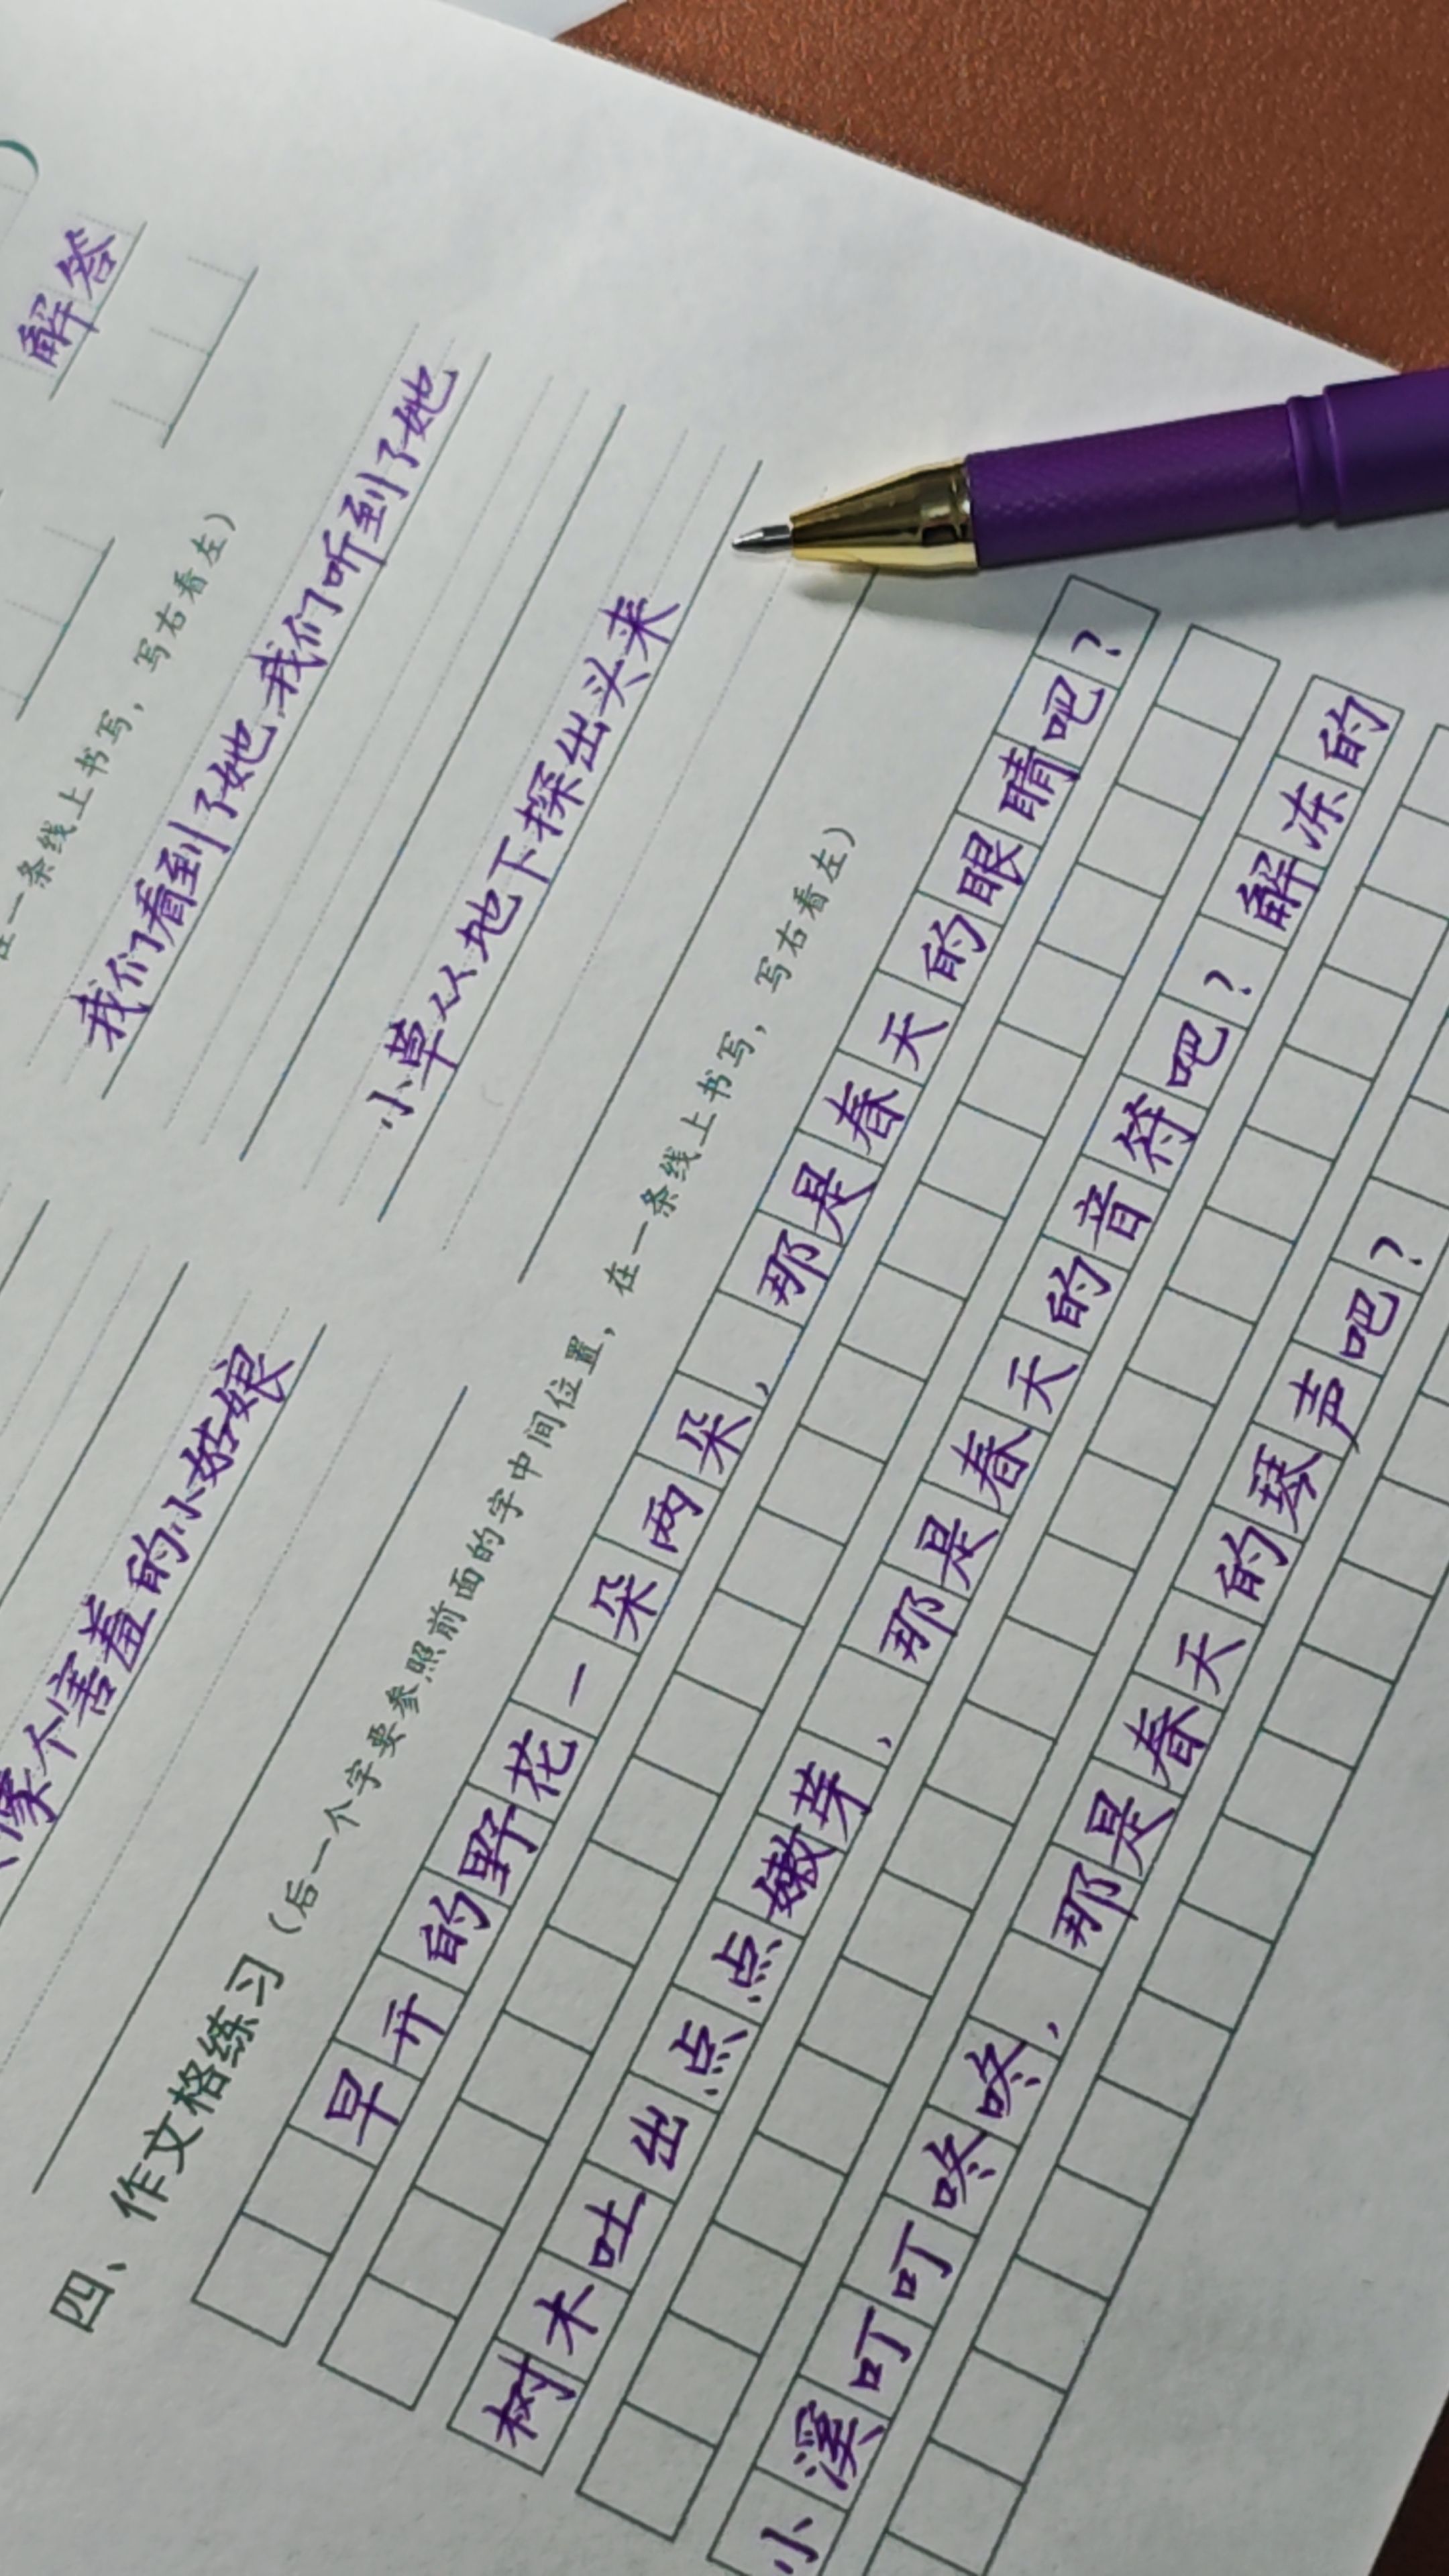 解答
在一条线上书写，写右看左）
我们看到了她,我们听到了她
像个害羞的小姑娘
小草从地下探出头来
四、作文格练习（后一个字要参照前面的字中间位置，在一条线上书写，写右看左）
早开的野花一朵两朵，那是春天的眼睛吧？
树木吐出点点嫩芽，那是春天的音符吧？解冻的
小溪叮叮咚咚，那是春天的琴声吧？